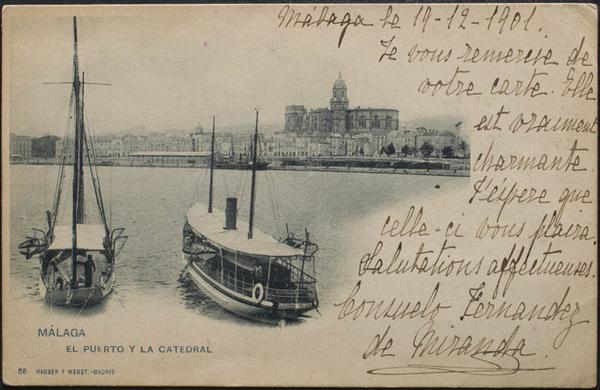 Málaga le 19-12-1901.
Je vous remercie de
votre carte. Elle
est vraiment
charmante.
J'espere que
celle-ci vous plaira.
Salutations affectueuses.
Consuelo Fernandez
de Miranda.
MÁLAGA
EL PUERTO Y LA CATEDRAL
66 HAUSER Y MENET.-MADRID